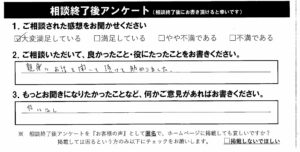 相談終了後アンケート(相談終了後にお書き頂けると幸いです)
1. ご相談された感想をお聞かせください
☑大変満足している □満足している □やや不満である □不満である
2. ご相談いただいて、良かったこと・役にたったことをお書きください。
親身にお話を聞いて頂けて
3. もっとお聞きになりたかったことなど、何かご意見があればお書きください。
特になし
※ 相談終了後アンケートを『お客様の声』として匿名で、ホームページに掲載しても宜しいですか?
掲載しては困るという方のみ以下にチェックをお願いします。 □掲載しないでほしい